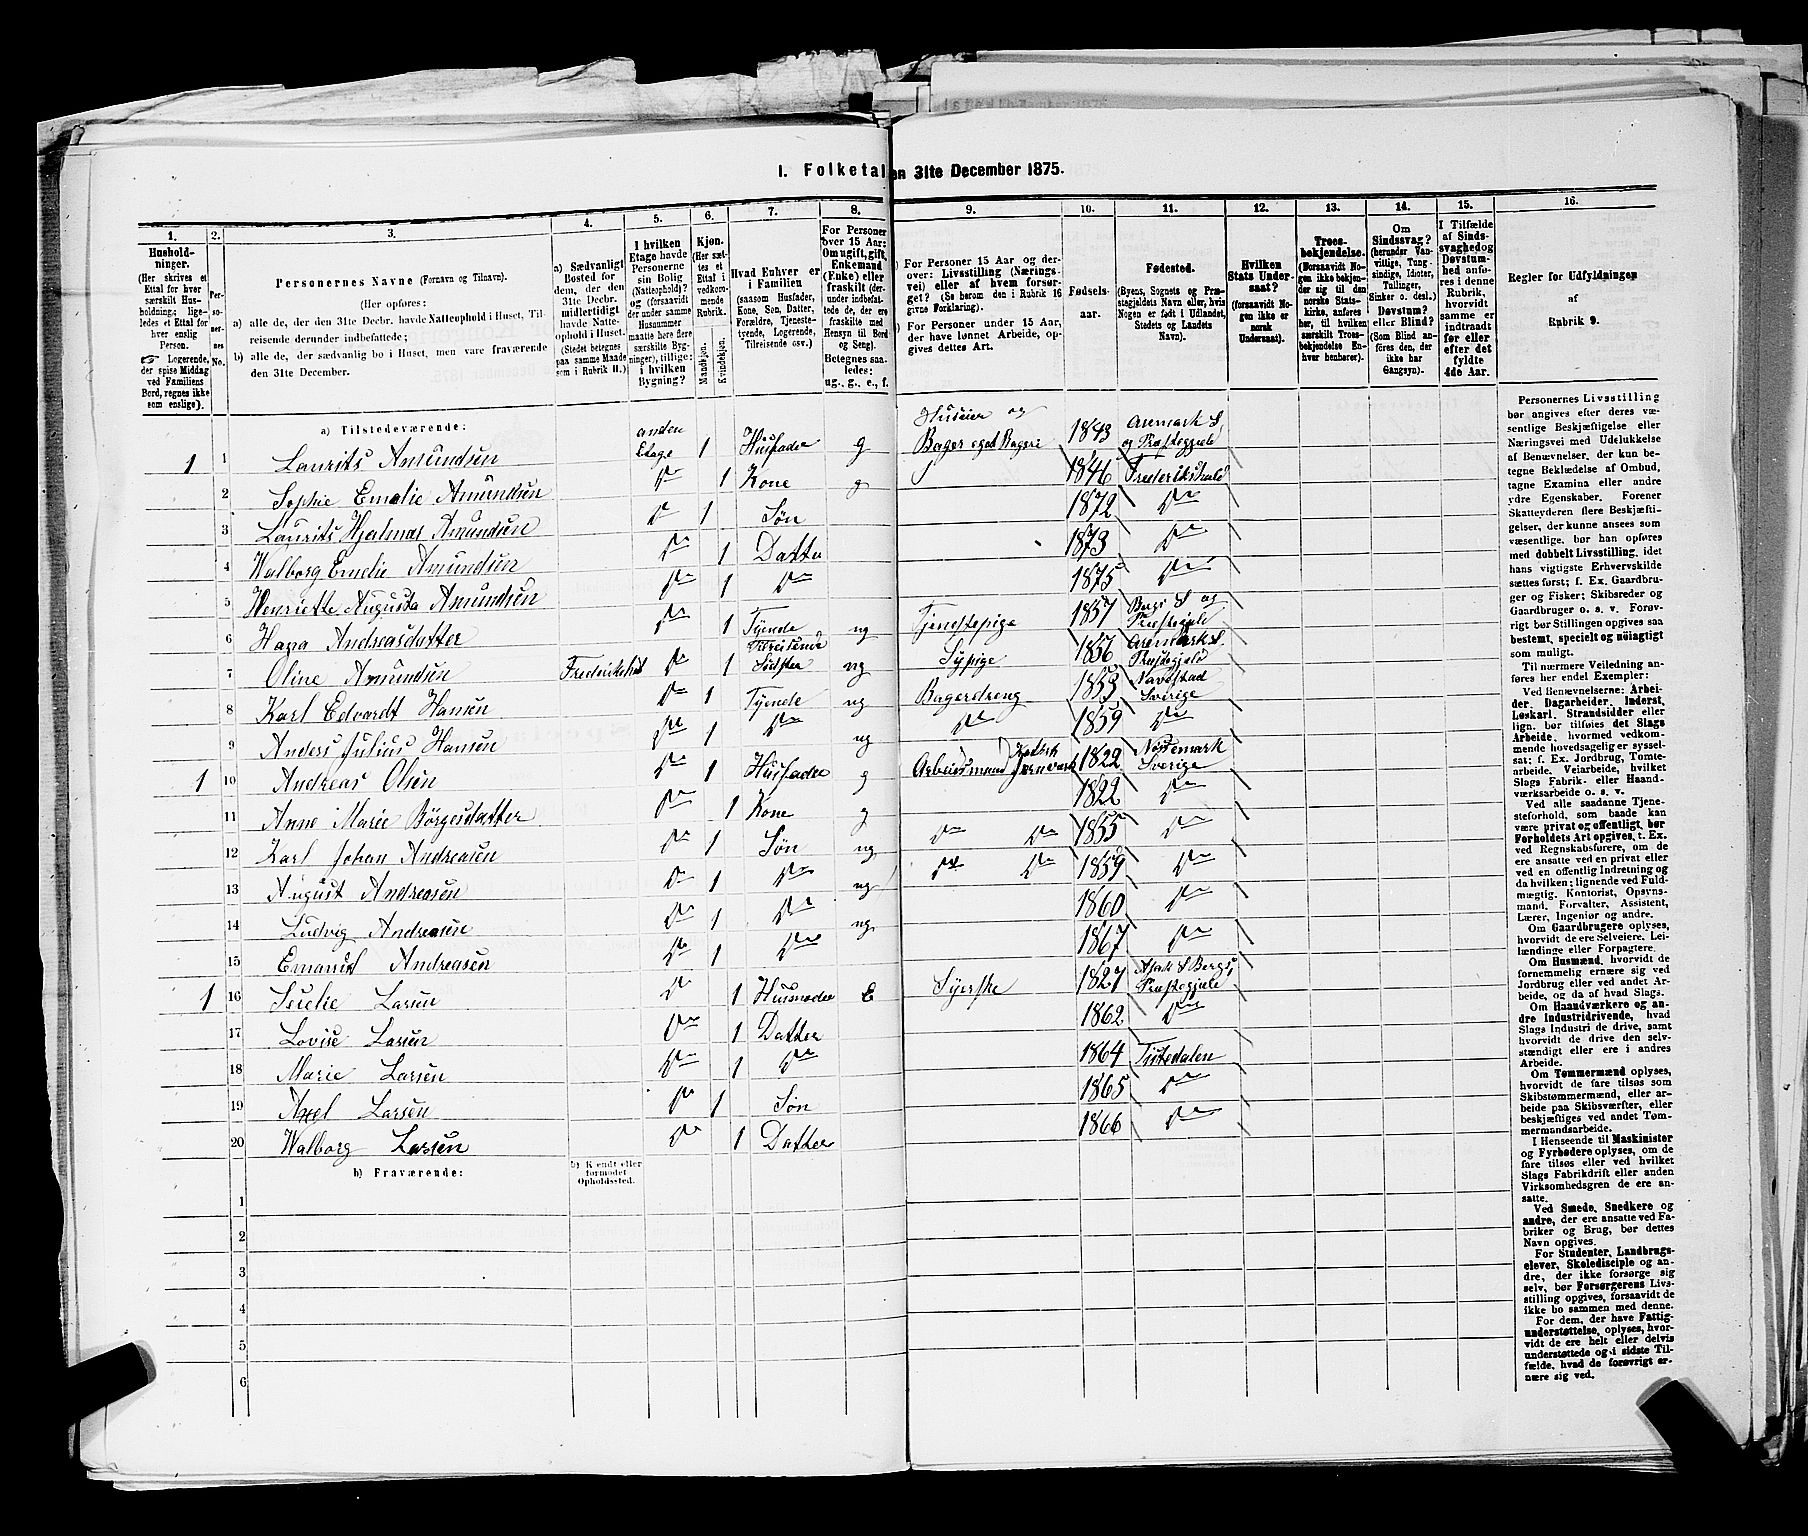 I. Folketal den 31te December 1875.
1. 2. 3. 4. 5. 6. 7. 8. 9. 10. 11. 12. 13. 14. 15. 16.
Husholdninger.
(Her skrives et Ettal for hver særskilt Husholdning; ligeledes et Ettal for hver enslig Person.
☞ Logerende, der spise Middag ved Familiens Bord, regnes ikke som enslige).
Personernes No.
Personernes Navne (Fornavn og Tilnavn).
(Her opføres:
a) alle de, der den 31te Decbr. havde Natteophold i Huset, Tilreisende derunder indbefattede;
b) alle de, der sædvanlig bo i Huset, men vare fraværende den 31te December.
a) Sædvanligt Bosted for dem, der den 31te Decbr. midlertidigt havde Natteophold i Huset. (Stedet betegnes paa samme Maade som i Rubrik 11.)
I hvilken Etage havde Personerne sin Bolig (Natteophold)? og (forsaavidt der under samme Husnummer maatte høre flere særskilte Bygninger), tillige: i hvilken Bygning?
Kjøn. (Her sættes et Ettal i vedkommende Rubrik.
Mandkjøn.
Kvindekjøn.
Hvad Enhver er i Familien
(saasom Husfader, Kone, Søn, Datter, Forældre, Tjenestetyende, Logerende, Tilreisende osv.)
For Personer over 15 Aar: Om ugift, gift, Enkemand (Enke) eller fraskilt (derunder indbefattede de, der ere fraskilte med Hensyn til Bord og Seng).
Betegnes saaledes: ug., g., e., f.
a) For Personer 15 Aar og derover: Livsstilling (Næringsvei) eller af hvem forsørget? (Se herom den i Rubrik 16 givne Forklaring).
b) For Personer under 15 Aar, der have lønnet Arbeide, opgives dettes Art.
Fødselsaar.
Fødested.
(Byens, Sognets og Præstegjeldets Navn eller, hvis Nogen er født i Udlandet, Stedets og Landets Navn).
Hvilken Stats Undersaat?
(forsaavidt Nogen ikke er norsk Undersaat).
Troesbekjendelse.
(Forsaavidt Nogen ikke bekjender sig til den norske Statskirke, anføres her, til hvilken særskilt Troesbekjendelse Enhver henhører).
Om Sindssvag? (herunder Vanvittige, Tungsindige, Idioter, Tullinger, Sinker o. desl.) Døvstum? eller Blind? (Som Blind anføres den, der ikke har Gangsyn).
I Tilfælde af Sindssvaghed og Døvstumhed anføres i denne Rubrik, hvorvidt samme er indtraadt før eller efter det fyldte 4de Aar.
Regler for Udfyldningen
af
Rubrik 9.
a) Tilstedeværende:
1 1 Laurits Amundsen anden Etage 1 Husfader g Huseier og Bager eget Bageri 1843 Aremark S. og Præstegjeld
2 Sophie Emelie Amundsen Do 1 Kone g 1846 Frederikshald
3 Laurits Hjalmar Amundsen Do 1 Søn 1872 Do
4 Walborg Emelie Amundsen Do 1 Datter 1873 Do
5 Henriette Augusta Amundsen Do 1 Do 1875 Do
6 Hana Andreasdatter Do 1 Tyende ug Tjenestepige 1857 Bergs S og Præstegjeld
7 Oline Amundsen Frederikshald Do Tilreisende Södster ug Sypige 1856 Aremark S. Præstegjeld
8 Karl Edvardt Hansen Do 1 Tyende ug Bagerdreng 1853 Navestad Sverige
9 Anders Julius Hansen Do 1 Do ug Do 1859 Do
1 10 Andreas Olsen Do 1 Husfader g Arbeidsmand Jernværk 1822 Nössemark Sverige
11 Anne Marie Börgesdatter Do 1 Kone g 1822 Do
12 Karl Johan Andreasen Do 1 Søn ug Do Do 1855 Do
13 August Andreasen Do 1 Do ug Do Do 1859 Do
14 Ludvig Andreasen Do 1 Do ug 1860 Do
15 Emanuel Andreasen Do 1 Do 1867 Do
1 16 Larsen Do 1 Husmoder E Syerske 1827 S Bergs Præstegjeld
17 Lovise Larsen Do 1 Datter 1862 Do
18 Marie Larsen Do 1 Do 1864 Tistedalen
19 Axel Larsen Do 1 Søn 1865 Do
20 Walborg Larsen Do 1 Datter 1866 Do
b) Fraværende:
b) Kjendt eller formodet Opholdssted.
1
2
3
4
5
6
Personernes Livsstilling
bør angives efter deres væ-
sentlige Beskjæftigelse eller
Næringsvei med Udelukkelse
af Benævnelser, der kun be-
tegne Beklædelse af Ombud,
tagne Examina eller andre
ydre Egenskaber. Forener
Skatteyderen flere Beskjæfti-
gelser, der kunne ansees som
væsentlige, bør han opføres
med dobbelt Livsstilling, idet
hans vigtigste Erhvervskilde
sættes først; f. Ex. Gaardbru-
ger og Fisker; Skibsreder og
Gaardbruger o. s. v. Forøv-
rigt bør Stillingen opgives saa
bestemt, specielt og nöiagtigt
som muligt.
Til nærmere Veiledning an-
føres her endel Exempler:
Ved Benævnelserne: Arbei-
der, Dagarbeider, Inderst,
Løskarl, Strandsidder eller
lign. bør tilføies det Slags
Arbeide, hvormed vedkom-
mende hovedsagelig er syssel-
sat; f. Ex. Jordbrug, Tomte-
arbeide, Veiarbeide, hvilket
Slags Fabrik- eller Haand-
værksarbeide o. s. v.
Ved alle saadanne Tjene-
steforhold, som baade kan
være privat og offentligt, bør
Forholdets Art opgives, t. Ex.
ved Regnskabsførere, om de
ere ansatte ved en privat eller
ved en offentlig Indretning og
da hvilken; lignende ved Fuld-
mægtig, Kontorist, Opsyns-
mand, Forvalter, Assistent,
Lærer, Ingeniør og andre.
Om Gaardbrugere oplyses,
hvorvidt de ere Selveiere, Lei-
lændinge eller Forpagtere.
Om Husmænd, hvorvidt de
fornemmelig ernære sig ved
Jordbrug eller ved andet Ar-
beide, og da af hvad Slags.
Om Haandværkere og an-
dre Industridrivende, hvad
Slags Industri de drive, samt
hvorvidt de drive den selv-
stændigt eller ere i andres
Arbeide.
Om Tømmermænd oplyses,
hvorvidt de fare tilsøs som
Skibstømmermænd, eller ar-
beide paa Skibsværfter, eller
beskjæftiges ved andet Tøm-
mermandsarbeide.
I Henseende til Maskinister
og Fyrbødere oplyses, om de
fare tilsøs eller ved hvilket
Slags Fabrikdrift eller anden
Virksomhedsgren de ere an-
satte.
Ved Smede, Snedkere og
andre, der ere ansatte ved Fa-
briker og Brug, bør dettes
Navn opgives.
For Studenter, Landbrugs-
elever, Skoledisciple og an-
dre, der ikke forsørge sig
selv, bør Forsørgerens Livs-
stilling opgives, forsaavidt de
ikke bo sammen med denne.
For dem, der have Fattig-
understøttelse, oplyses, hvor-
vidt de ere helt eller delvis
understøttede og i sidste Til-
fælde, hvad de forøvrigt er-
nære sig ved.